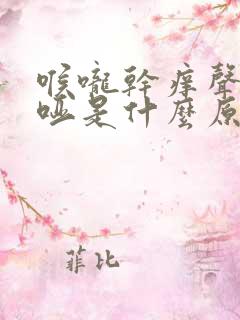 喉嚨幹癢聲
啞是什麼原
菲比